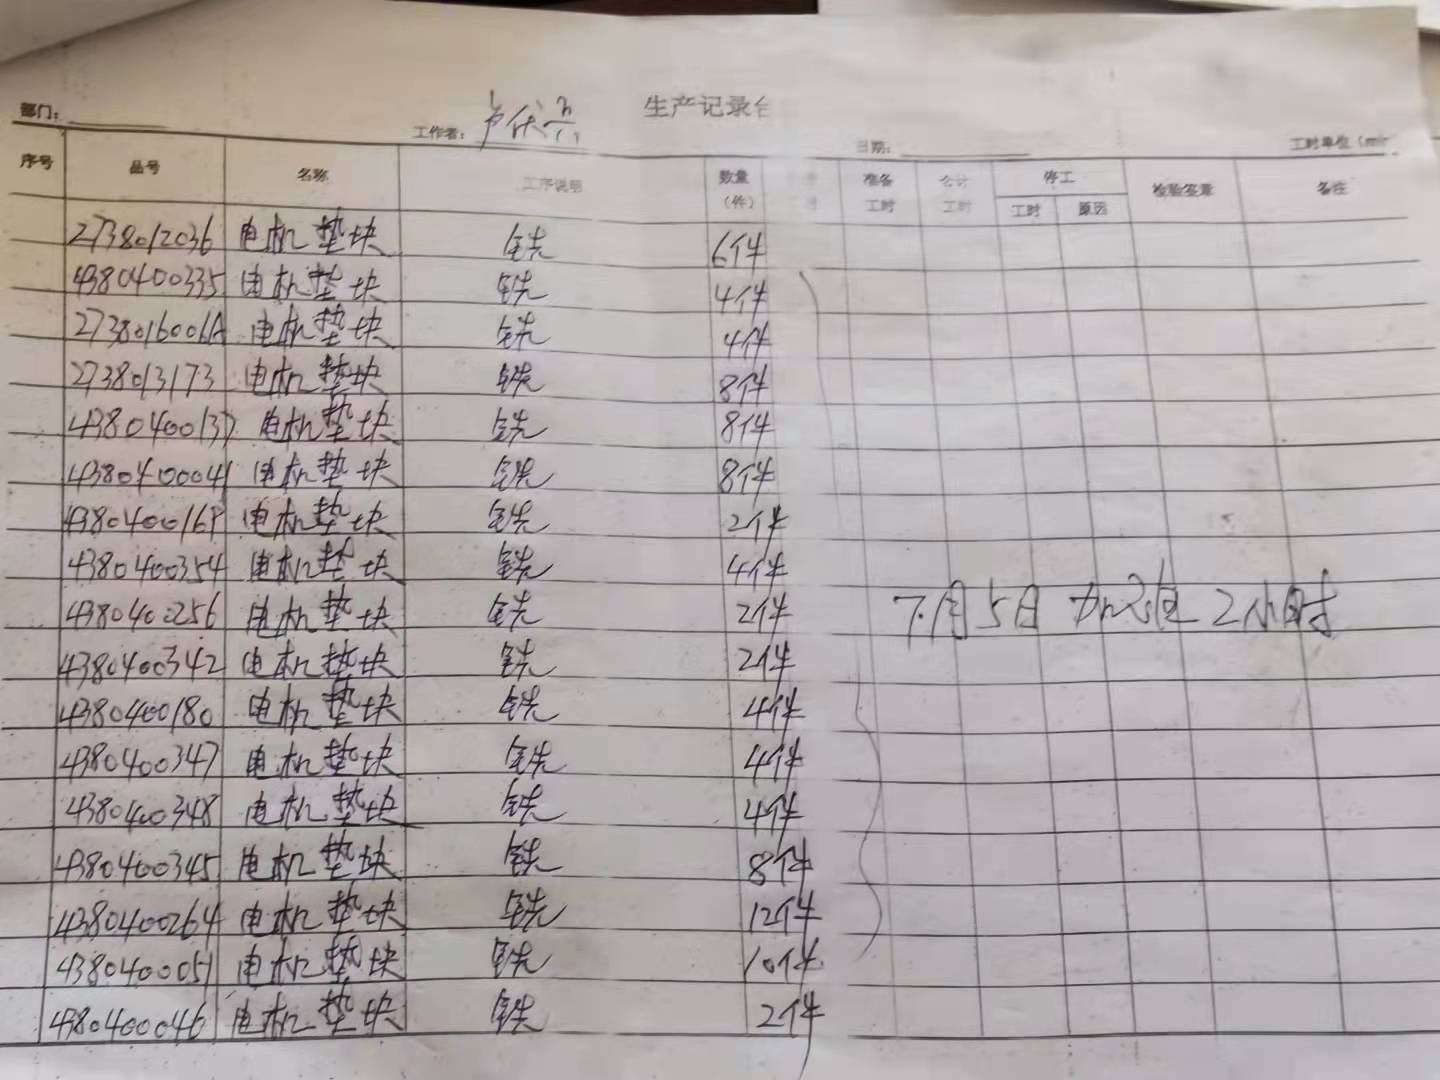 生产记录台
部门： 工作者： 日期： 工时单位（min
序号 品号 名称 工序说明 数量（件） 准备工时 合计工时 停工 工时 原因 检验签章 备注
2738012036 电机垫块 铣 6件
4380400335 电机垫块 铣 4件
2738016006A 电机垫块 铣 4件
2738013173 电机垫块 铣 8件
4380400137 电机垫块 铣 8件
4380400041 电机垫块 铣 8件
电机垫块 铣 2件
4380400354 电机垫块 铣 4件
4380400256 电机垫块 铣 2件
7月5日 加班 2小时
4380400342 电机垫块 铣 2件
4380400180 电机垫块 铣 4件
4380400347 电机垫块 铣 4件
4380400348 电机垫块 铣 4件
4380400345 电机垫块 铣 8件
4380400264 电机垫块 铣 12件
4380400051 电机垫块 铣 10件
4380400046 电机垫块 铣 2件